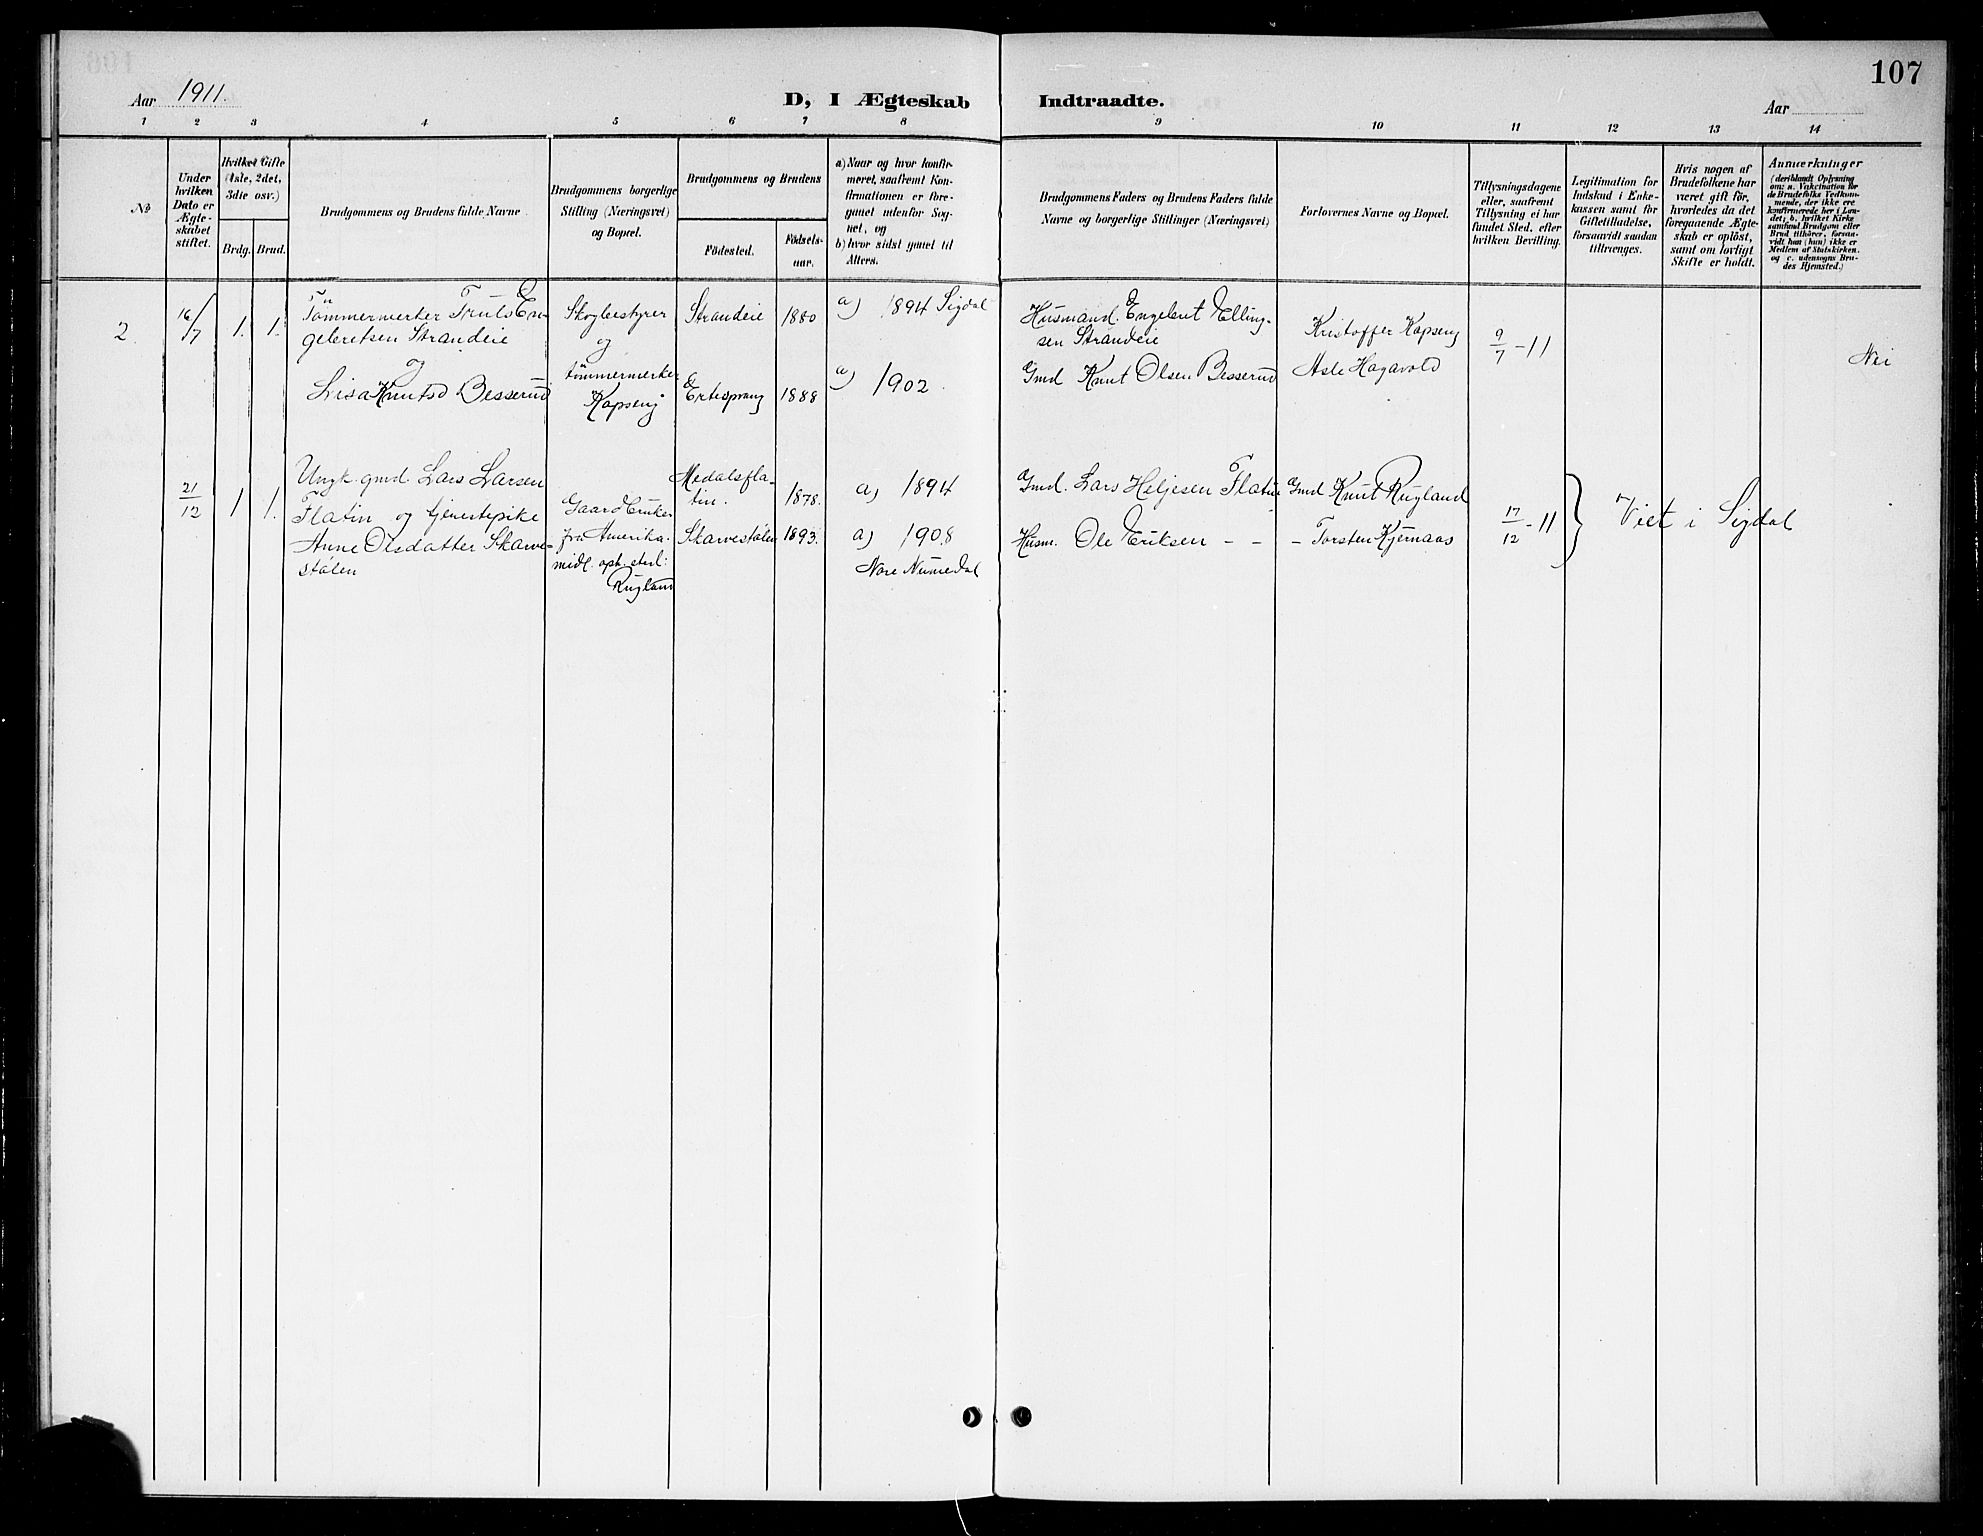 107
Aar 1911.
D, I Ægteskab Indtraadte.
Aar
1 2 3 4 5 6 7 8 9 10 11 12 13 14
No
Under
hvilken
Dato er
Ægte-
skabet
stiftet.
Hvilket Gifte
(1ste, 2det,
3die osv.)
Brdg. Brud.
Brudgommens og Brudens fulde Navne.
Brudgommens borgerlige
Stilling (Næringsvei)
og Bopæl.
Brudgommens og Brudens
Fødested.
Fødsels-
aar.
a) Naar og hvor konfir-
meret, saafremt Kon-
firmationen er fore-
gaaet udenfor Sog-
net, og
b) hvor sidst gaaet til
Alters.
Brudgommens Faders og Brudens Faders fulde
Navne og borgerlige Stillinger (Næringsvei)
Forlovernes Navne og Bopæl.
Tillysningsdagene
eller, saafremt
Tillysning ei har
fundet Sted, efter
hvilken Bevilling.
Legitimation for
Indskud i Enke-
kassen samt for
Giftetilladelse,
forsaavidt saadan
tiltrænges.
Hvis nogen af
Brudefolkene har
været gift før,
hvorledes da det
foregaaende Ægte-
skab er opløst,
samt om lovligt
Skifte er holdt.
Anmærkninger
(deriblandt Oplysning
om: a. Vakcination for
de Brudefolks Vedkom-
mende, der ikke ere
konfirmerede her i Lan-
det; b. hvilket Kirke
samfund Brudgom eller
Brud tilhører, forsaa-
vidt han (hun) ikke er
Medlem af Statskirken.
og c. udensogns Bru-
des Hjemsted.)
2.
16/7
1. 1.
Tømmermerker Truls En-
gebretsen Strandeie
og
Lisa Knutsd Besserud
Skogbestyrer
og
tømmermerker
Kopseng
Strandeie 1880
Ertesprang 1888
a) 1894 Sigdal
a) 1902.
Husmand. Engebret Elling-
sen Strandeie
Gmd Knut Olsen Besserud
Kristoffer Kopseng
Asle Hagavold
9/7 - 11
Nei
21/12
1 1.
Ungk. gmd. Lars Larsen
Flatin og tjenestepike
Anne Olsdatter Skarve-
stølen
Gaardbruker
fra Amerika.
midl. oph. sted:
Rugland
Medalsfla-
tin. 1878.
Skarvestølen 1893.
a) 1894
a) 1908
Nore Numedal
Gmd. Lars Heljesen Flatin
Husm. Ole Eriksen - -
Gmd Knut Rugland
- Torsten Kjernaas
17/12 - 11
Viet i Sigdal